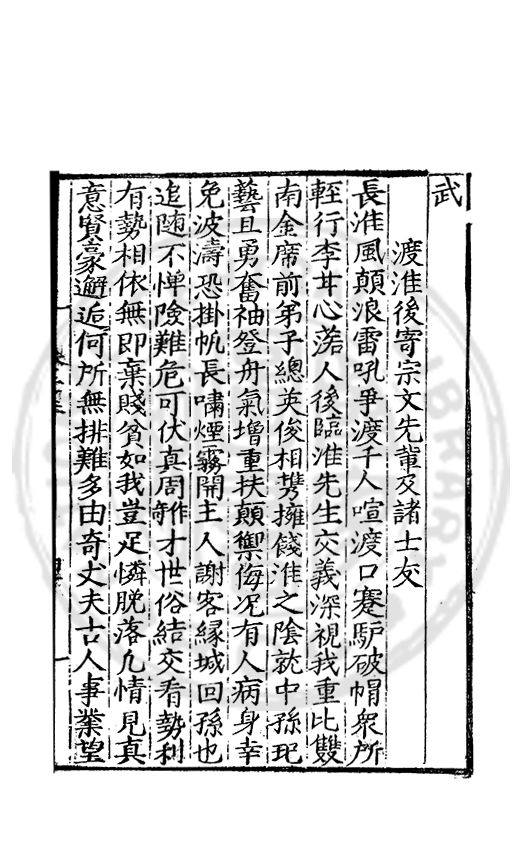 武
渡淮後寄宗文先輩及諸士友
長淮風顛浪雷吼爭渡千人喧渡口蹇馿破帽衆所
輕行李甘心落人後臨淮先生交義深視我重比雙
南金席前弟子總英俊相携擁餞淮之陰就中孫𤣱
藝且勇奮袖登舟氣增重扶顛禦侮况有人病身幸
免波濤恐掛帆長嘯煙霧開主人謝客緣城回孫也
追随不憚險難危可伏真周作才世俗結交看勢利
有勢相依無即棄賤貧如我豈足憐脫落凡情見真
意賢豪邂逅何所無排難多由奇丈夫古人事業望